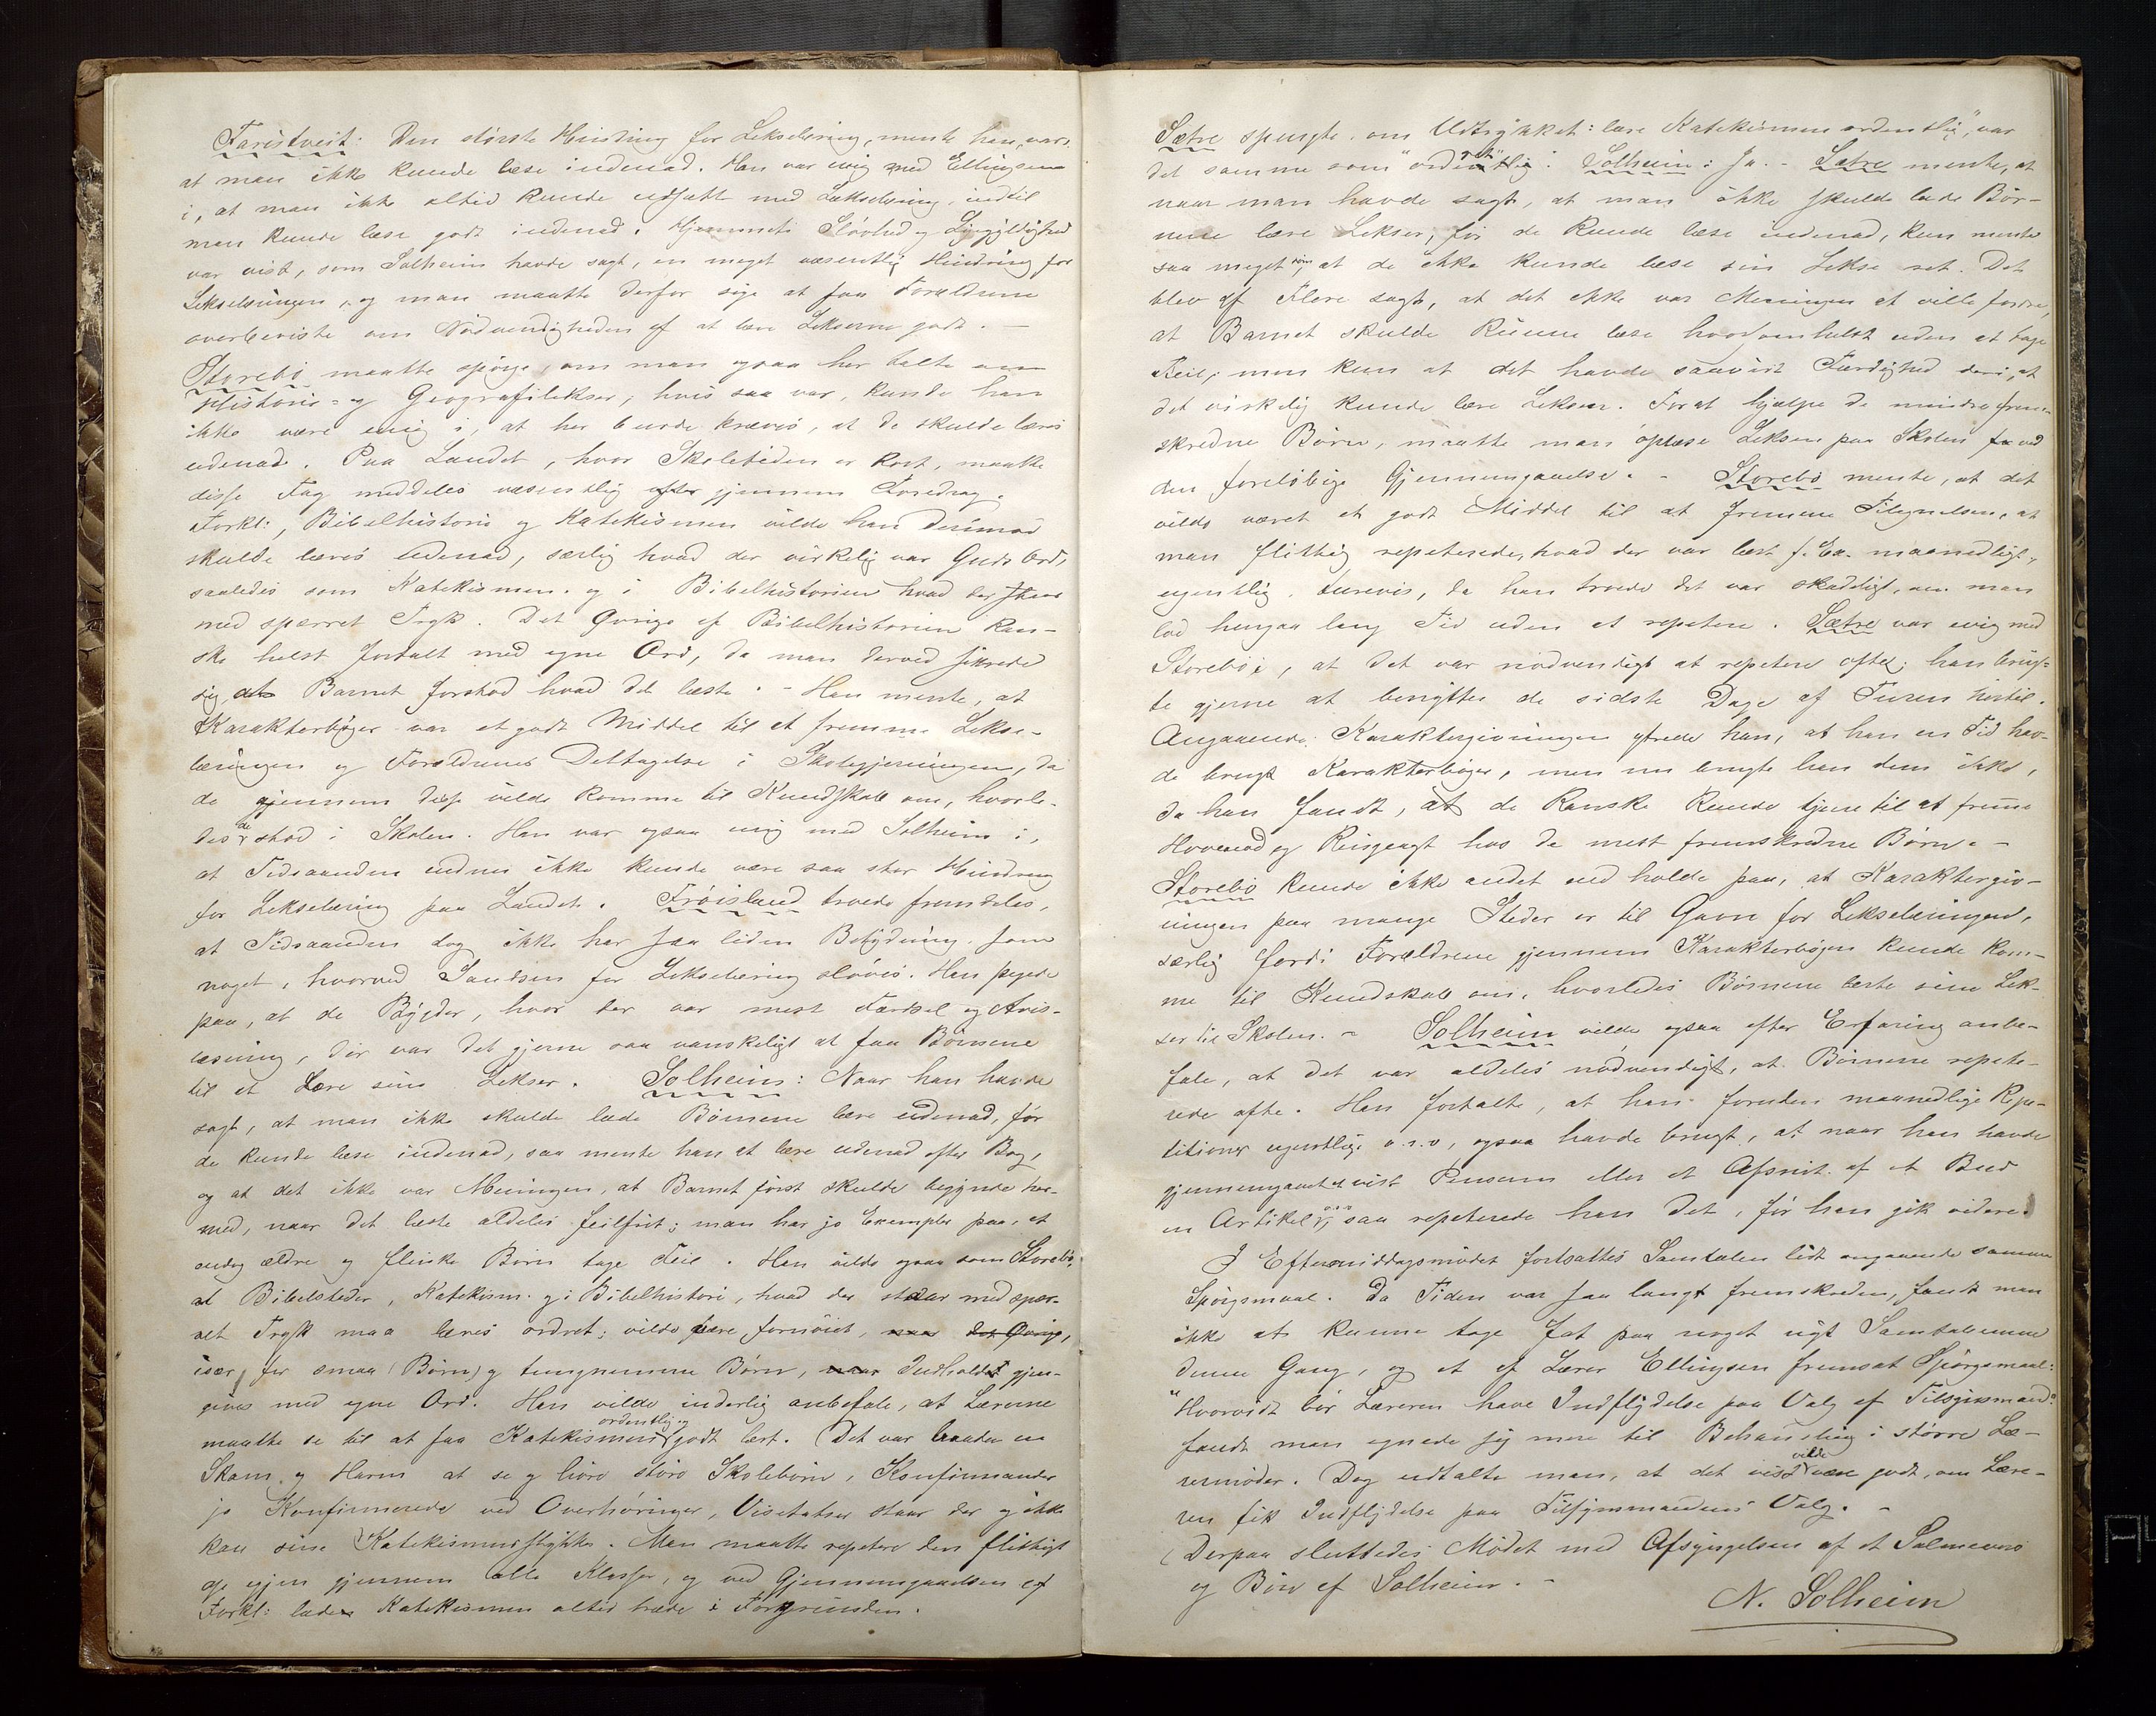 Faristveit: Den største Hindring for Lekselæring, mente han, var,
at man ikke kunde læse indenad. Han var enig med Ellingsen
i, at man ikke altid kunde udsætte med Lekselæring, indtil
man kunde læse godt indenad. Hjemmets Sløvhed og Ligegyldighed
var vist, som Solheim havde sagt, en meget væsentlig Hindring for
Lekselæsningen, og man maatte derfor søge at faa Forældrene
overbeviste om Nødvendigheden af at lære Lekserne godt. –
Storebø maatte spørge, om man ogsaa her talte om
Historie- og Geografilekser; hvis saa var, kunde han
ikke være enig i, at her burde kræves, at de skulde læres
udenad. Paa Landet, hvor Skoletiden er kort, maatte
disse Fag meddeles væsentlig gjennem Foredrag.
Forkl:, Bibelhistorie og Katekismen vilde han derimod
skulde læres udenad, særlig hvad der virkelig var Guds Ord,
saaledes som Katekismen og i Bibelhistorien hvad der staar
med spærret Tryk. Det Øvrige af Bibelhistorien kan-
ske helst fortalt med egne Ord, da man derved sikrede
sig, at Barnet forstod hvad det læste. – Han mente, at
Karakterbøger var et godt Middel til at fremme Lekse-
læringen og Forældrenes Deltagelse i Skolegjerningen, da
de gjennem disse vilde komme til Kundskab om, hvorle-
des de stod i Skolen. Han var ogsaa enig med Solheim i,
at Tidsaanden endnu ikke kunde være saa stor Hindring
for Lekselæring paa Landet. Frøisland troede fremdeles,
at Tidsaanden dog ikke har saa liden Betydning som
noget, hvorved Sandsen for Lekselæring sløves. Han pegede
paa, at de Bygder, hvor der var mest Færdsel og Avis-
læsning, der var det gjerne saa vanskeligt at faa Børnene
til at lære sine Lekser. Solheim: Naar han havde
sagt, at man ikke skulde lade Børnene lære udenad, før
de kunde læse indenad, saa mente han at lære udenad efter Bog,
og at det ikke var Meningen, at Barnet først skulde begynde her-
med, naar det læste aldeles feilfrit; man har jo Exempler paa, at
endog ældre og flinke Børn tage Feil. Han vilde ogsaa som Storebø,
at Bibelsteder, Katekism. og i Bibelhistorie, hvad der staar med spær-
ret Tryk maa læres ordret; vilde være fornøiet, naar det Øvrige,
især for smaa (Børn) og tungnemme Børn, naar Indholdet gjen-
gives med egne Ord. Han vilde inderlig anbefale, at Lærerne
maatte se til at faa Katekismen ordentlig og godt lært. Det var baade en
Skam og Harm at se og høre store Skolebørn, Konfirmander
ja Konfirmerede ved Overhøringer, Visitatser staar der og ikke
kan sine Katekismusstykker. Man maatte repetere den flittigt
op igjen gjennem alle Klasser, og ved Gjennemgaaelsen af
Forkl: lade Katekismen altid træde i Forgrunden.
Sætre spurgte om Udtrykket: lære Katekismen ordentlig", var
det samme som "ordret". Solheim: Ja. – Sætre mente, at
naar man havde sagt, at man ikke skulde lade Bør-
nene lære Lekser, før de kunde læse indenad, kun mente
saa meget som, at de ikke kunde læse sin Lekse ret. Det
blev af Flere sagt, at det ikke var Meningen at ville fordre,
at Barnet skulde kunne læse hvorsomhelst uden at tage
Feil, men kun at det havde saavidt Færdighed deri, at
det virkelig kunde lære Leksen. For at hjælpe de mindre frem-
skredne Børn, maatte man oplæse Leksen paa Skolen ved
den foreløbige Gjennemgaaelse. – Storebø mente, at det
vilde været et godt Middel til at fremme Tilegnelsen, at
man flittig repeterede, hvad der var lært f. Ex. maanedligt,
ugentlig, turevis, da han troede det var skadeligt, om man
lod hengaa lang Tid uden at repetere. Sætre var enig med
Storebø i, at det var nødvendigt at repetere ofte; han brug-
te gjerne at benytte de sidste Dage af Turen hertil.
Angaaende Karaktergivningen ytrede han, at han en Tid hav-
de brugt Karakterbøger, men nu brugte han dem ikke,
da han fandt, at de kanske kunde tjene til at fremme
Hovmod og Ringeagt hos de mest fremskredne Børn. –
Storebø kunde ikke andet end holde paa, at Karaktergiv-
ningen paa mange Steder er til Gavn for Lekselæringen,
særlig fordi Forældrene gjennem Karakterbøgen kunde kom-
me til Kundskab om, hvorledes Børnene lærte sine Lek-
ser til Skolen. – Solheim vilde ogsaa efter Erfaring anbe-
fale, at det var aldeles nødvendigt, at Børnene repete-
rede ofte. Han fortalte, at han foruden maanedlige Repe-
titioner ugentlige o.s.v, ogsaa havde brugt, at naar han havde
gjennemgaaet et vist Pensum eller et Afsnit af et Bud
en Artikel o.s.v, saa repeterede han det, før han gik videre.
I Eftermiddagsmødet fortsattes Samtalen lidt angaaende samme
Spørgsmaal. Da Tiden var saa langt fremskreden, fandt man
ikke at kunne tage fat paa noget nyt Samtaleemne
denne Gang, og et af Lærer Ellingsen fremsat Spørgsmaal:
"Hvorvidt bør Læreren have Indflydelse paa Valg af Tilsynsmænd"
fandt man egnede sig mere til Behandling i større Læ-
rermøder. Dog udtalte man, at det vist vilde være godt, om Lære-
ren fik Indflydelse paa Tilsynsmandens Valg. –
Derpaa sluttedes Mødet med Afsyngelsen af et Salmevers
og Bøn af Solheim. –
N. Solheim